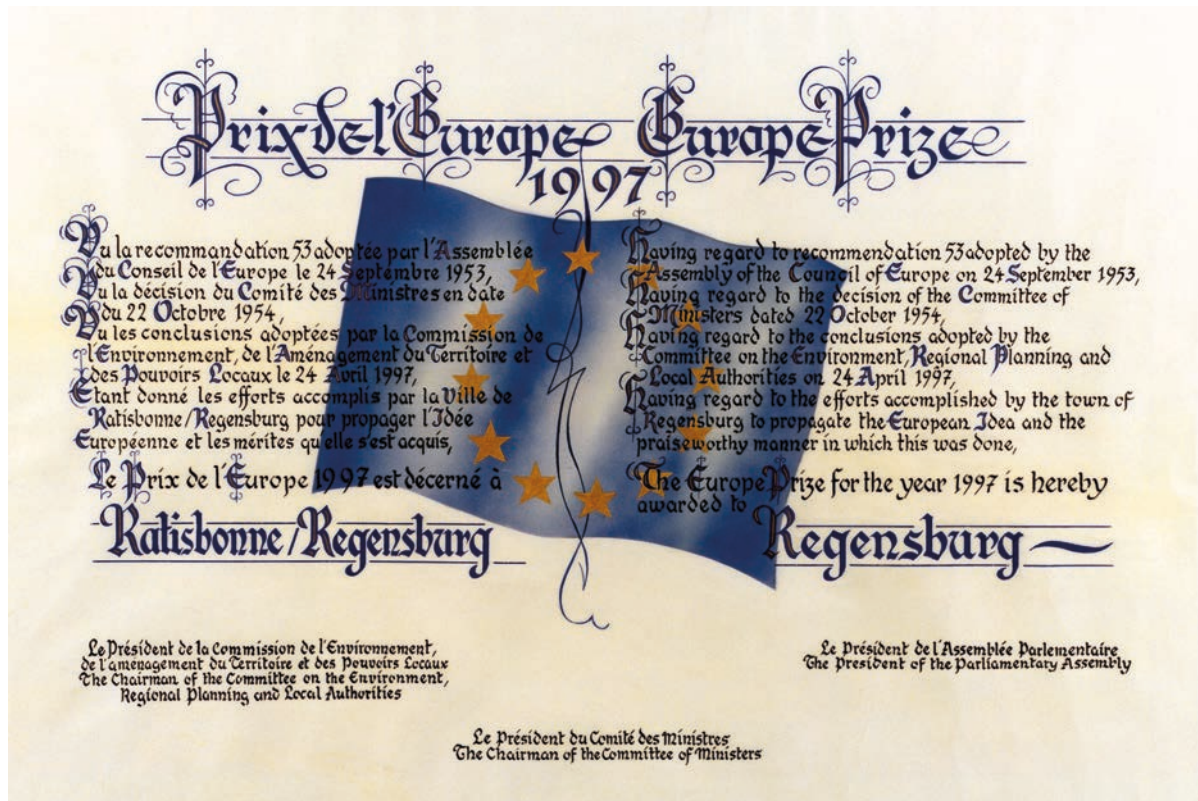 Prix de l'Europe
Europe Prize
1997
Vu la recommandation 53 adoptée par l'Assemblée
du Conseil de l'Europe le 24 Septembre 1953,
Vu la décision du Comité des Ministres en date
du 22 Octobre 1954,
Vu les conclusions adoptées par la Commission de
l'Environnement, de l'Aménagement du Territoire et
des Pouvoirs Locaux le 24 Avril 1997,
Etant donné les efforts accomplis par la Ville de
Ratisbonne/Regensburg pour propager l'Idée
Européenne et les mérites qu'elle s'est acquis,
Le Prix de l'Europe 1997 est décerné à
Ratisbonne/Regensburg
Having regard to recommendation 53 adopted by the
Assembly of the Council of Europe on 24 September 1953,
Having regard to the decision of the Committee of
Ministers dated 22 October 1954,
Having regard to the conclusions adopted by the
Committee on the Environment, Regional Planning and
Local Authorities on 24 April 1997,
Having regard to the efforts accomplished by the town of
Regensburg to propagate the European Idea and the
praiseworthy manner in which this was done,
The Europe Prize for the year 1997 is hereby
awarded to
Regensburg
Le Président de la Commission de l'Environnement,
de l'aménagement du Territoire et des Pouvoirs Locaux
The Chairman of the Committee on the Environment,
Regional Planning and Local Authorities
Le Président de l'Assemblée Parlementaire
The President of the Parliamentary Assembly
Le Président du Comité des Ministres
The Chairman of the Committee of Ministers